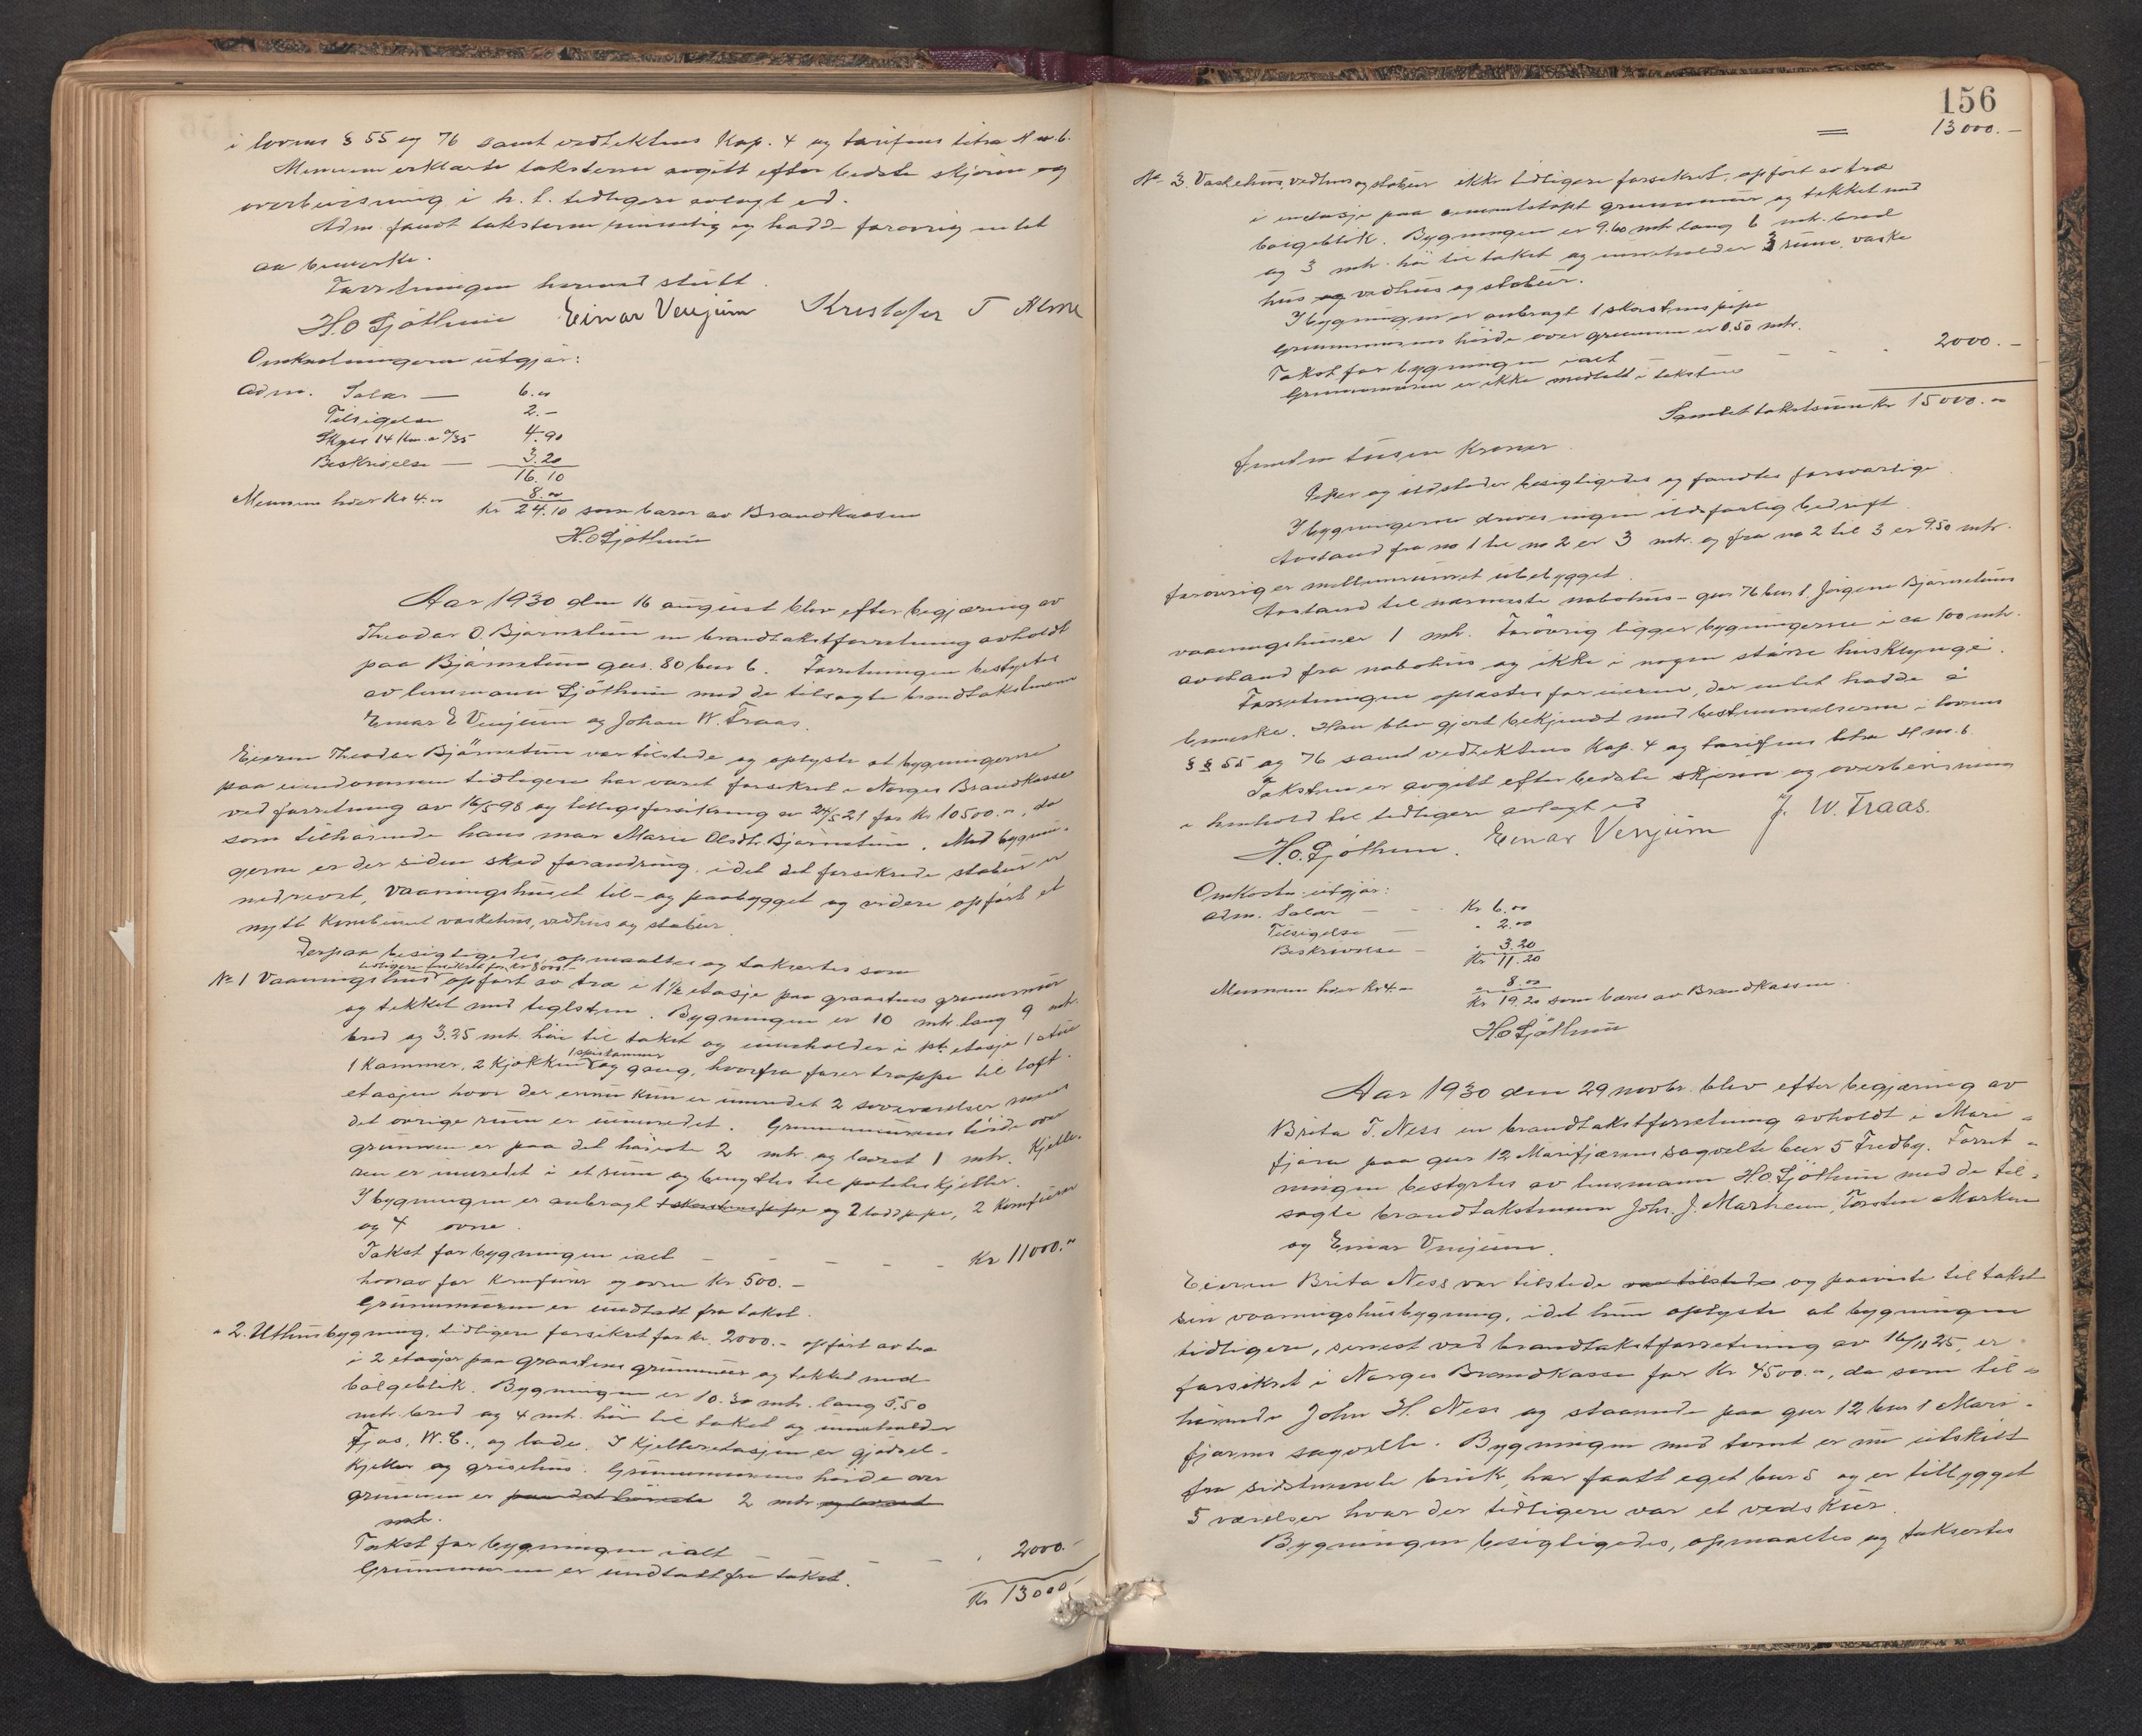 i lovens § 55 og 76 samt vedtektens Kap. 4 og tarifens litra H m 6.
Mennene erklærte taksterne avgitt efter bedste skjønn og
overbevisning i h. t. tidligere avlagt ed.
Adm. fandt taksterne rimelig og hadde forøvrig intet
aa bemerke.
Forretningen hermed slutt.
H.O. Fjøthun Einar Venjum Kristofer T Alme
Omkostningene utgjør:
Adm. Salær — 6.00
Tilsigelse 2.-
Skyss 14 Km. a 0/35 4.90
Beskrivelse — 3.20
16.10
Mennene hver Kr 4.00 8.00
Kr 24.10 som bæres av Brandkassen
H.O Fjøthun
Aar 1930 den 16 august blev efter begjæring av
Theodor O. Bjørnetun en brandtakstforretning avholdt
paa Bjørnetun gnr. 80 bnr 6. Forretningen bestyrtes
av lensmann Fjøthun med de tilsagte brandtakstmenn
Einar E Venjum og Johan W. Fraas.
Eieren Theodor Bjørnetun var tilstede og oplyste at bygningerne
paa eiendommen tidligere har været forsikret i Norges Brandkasse
ved forretning av 16/5 98 og tilleggsforsikring av 24/5 21 for Kr 10500.00, da
som tilhørende hans mor Marie Olsdtr. Bjørnetun. Med bygnin-
gerne er der siden sked forandring, idet det forsikrede stabur er
nedrevet, vaaningshuset til- og paabygget og videre opført et
nytt kombinert vaskehus, vedhus og stabur
Derpaa besigtigedes, opmaaltes og takseredes som
tidligere forsikret for Kr 8000.-
No 1 Vaaningshus opført av træ i 1½ etasje paa graastens grunnmur
og tekket med teglsten. Bygningen er 10 mtr. lang 9 mtr.
bred og 3.25 mtr. høi til takst og inneholder i 1ste etasje 1 stue
1 spiskammer
1 Kammer, 2 Kjøkken og gang, hvorfra fører trappe til loft-
etasjen hvor der ennu kun er innredet 2 soveværelser mens
det øvrige rum er uinnredet. Grunnmurens høide over
grunnen er paa det høieste 2 mtr. og lavest 1 mtr. Kjelle-
ren er innredet i et rum og benyttes til potetkjeller.
I bygningen er anbragt 1 skorstenspipe og 2 loddpiper, 2 Komfurer
og 4 ovne.
Takst for bygningen ialt - - - - Kr 11000.00
hvorav for Komfurer og ovne Kr 500.-
Grunnmuren er undtatt fra takst.
" 2. Uthusbygning, tidligere forsikret for kr. 2000.- opført av træ
i 2 etasjer paa graastens grunnmur og tekket med
bølgeblik. Bygningen er 10.30 mtr. lang 5.50
mtr. bred og 4 mtr. høi til takst og inneholder
Fjøs, W.C., og lade. I Kjelleretasjen er gjødsel-
kjeller og grisehus. Grunnmurens høide over
grunnen er paa det høieste 2 mtr. og lavest
mtr.
Takst for bygningen ialt - - - " 2000.-
Grunnmuren er undtatt fra takst.
Kr 13000.-
156
= 13000.-
No 3. Vaskehus, vedhus og stabur ikke tidligere forsikret, opført av træ
i enetasje paa cementstøpt grunnmur og tekket med
bølgeblik. Bygningen er 9.60 mtr. lang 6 mtr. bred
og 3 mtr. høi til takst og inneholder 3 rum, vaske
hus og vedhus og stabur.
I bygningen er anbragt 1 skorstenspipe
Grunnmurens høide over grunnen er 0.50 mtr.
Takst for bygningen ialt - - - 2000.-
Grunnmuren er ikke medtatt i taksten
Samlet takstsum Kr 15000.00
femten tusen Kroner.
Piper og ildsteder besigtigedes og fandtes forsvarlige.
I bygningerne drives ingen ildsfarlig bedrift.
Avstand fra no 1 til no 2 er 3 mtr. og fra no 2 til 3 er 9.50 mtr.
forøvrig er mellemrummet ubebygget.
Avstand til nærmeste nabohus - gnr 76 bnr 1, Jørgine Bjørnetuns
vaaningshus er 1 mtr. Forøvrig ligger bygningerne i ca 100 mtr.
avstand fra nabohus og ikke i nogen større husklynge.
Forretningen oplæstes for eieren, der intet hadde å
bemerke. Han blev gjort bekjendt med bestemmelserne i lovens
§ § 55 og 76 samt vedtektens Kap. 4 og tarifens litra H m. 6.
Taksten er avgitt efter bedste skjønn og overbevisning
i henhold til tidligere avlagt ed
H.O. Fjøthun. Einar Venjum J. W. Fraas.
Omkostn. utgjør:
Adm. Salær — - Kr 6.00
Tilsigelse — " 2.00
Beskrivelse - " 3.20
Kr 11.20
Mennene hver Kr 4.00 " 8.00
Kr 19.20 som bæres av Brandkassen.
H.O Fjøthun
Aar 1930 den 29 novbr. blev efter begjæring av
Brita T. Ness en brandtakstforretning avholdt i Mari-
fjøra paa gnr 12 Marifjørens sagvelte bnr 5 Fredby. Forret-
ningen bestyrtes av lensmann H.O. Fjøthun med de til-
sagte brandtakstmenn Johs. J. Marheim, Torsten Marken
og Einar Venjum.
Eieren Brita Ness var tilstede var tilstede og paaviste til takst
sin vaaningshusbygning, idet hun oplyste at bygningen
tidligere, senest ved brandtakstforretning av 16/11 25, er
forsikret i Norges Brandkasse for Kr 4500.00, da som til-
hørende John H. Ness og staaende paa gnr 12 bnr 1 Mari-
fjørens sagvelte. Bygningen med tomt er nu utskilt
fra sidstnevnte bruk, har faatt eget bnr 5 og er tilbygget
5 værelser hvor der tidligere var et vedskur.
Bygningen besigtigedes, opmaaltes og taksertes